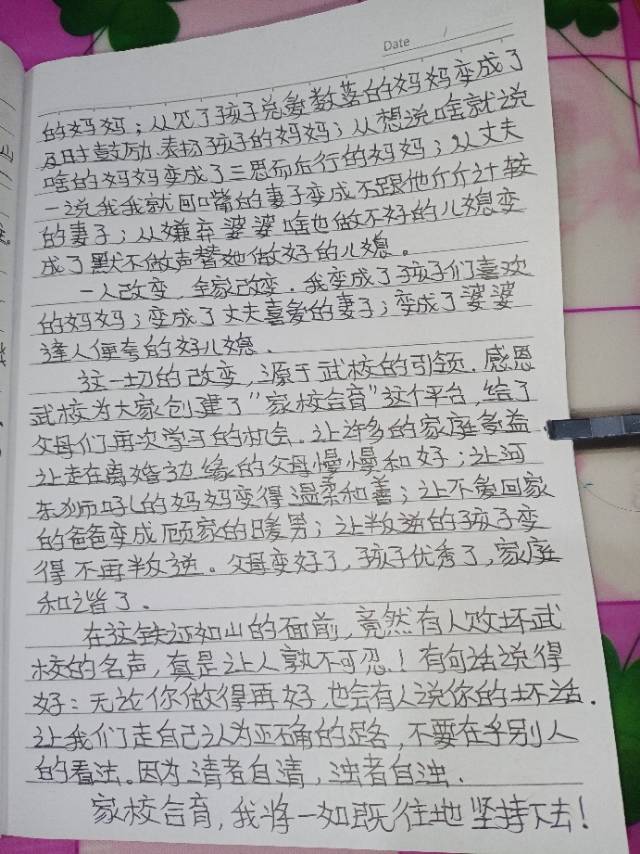 Date /
的妈妈；从欠了孩子总爱数落的妈妈变成了
及时鼓励、表扬孩子的妈妈；从想说啥就说
啥的妈妈变成了三思而后行的妈妈；从丈夫
一说我我就回嘴的妻子变成不跟他斤斤计较
的妻子；从嫌弃婆婆啥也做不好的儿媳变
成了默不做声替她做好的儿媳。
一人改变，全家改变．我变成了孩子们喜欢
的妈妈；变成了丈夫喜爱的妻子；变成了婆婆
逢人便夸的好儿媳．
这一切的改变，源于武校的引领．感恩
武校为大家创建了“家校合育”这个平台，给了
父母们再次学习的机会．让许多的家庭受益
让走在离婚边缘的父母慢慢和好；让河
东狮吼的妈妈变得温柔和善；让不爱回家
的爸爸变成顾家的暖男；让叛逆的孩子变
得不再叛逆。父母变好了，孩子优秀了，家庭
和谐了．
在这铁证如山的面前，竟然有人败坏武
校的名声，真是让人孰不可忍！有句话说得
好：无论你做得再好，也会有人说你的坏话．
让我们走自己认为正确的路，不要在乎别人
的看法。因为清者自清，浊者自浊．
家校合育，我将一如既往地坚持下去！